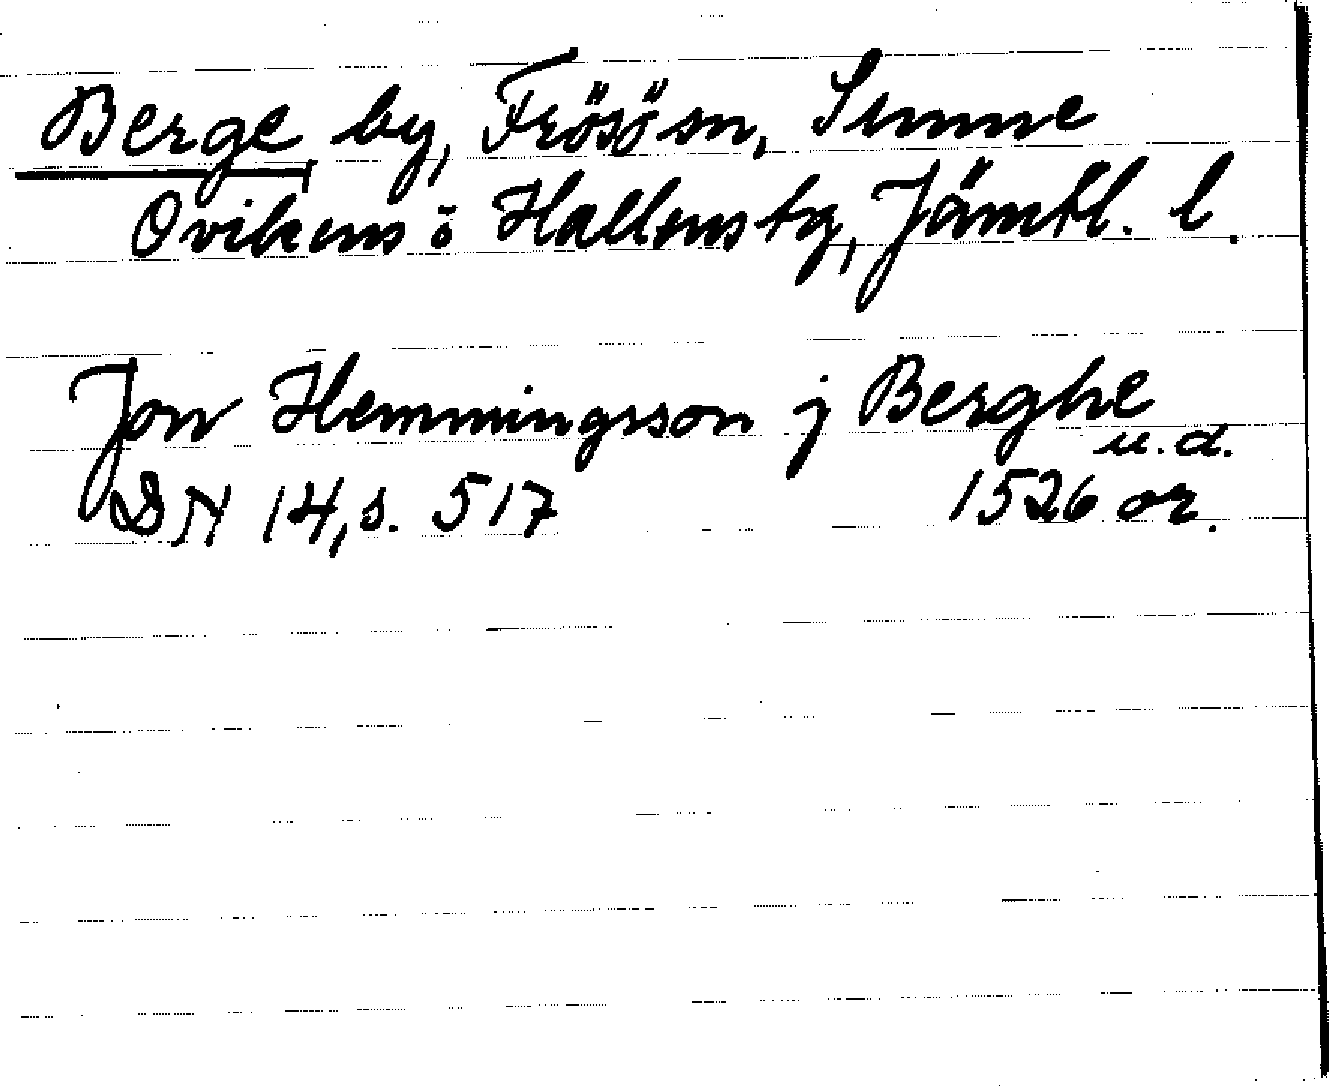 Berge, by, Frösö sn, Sunne
Ovikens ö Hallens tg, Jämtl. l.
Jon Hemmingsson j Berghe
u.d.
DN 14, s. 517 1526 or.